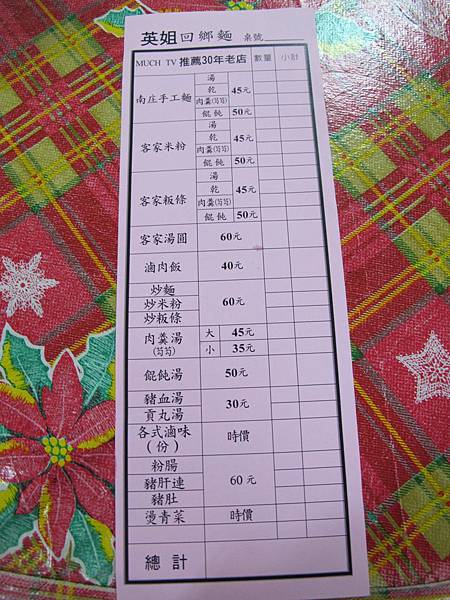 英姐回鄉麵 桌號
MUCH TV 推薦30年老店 數量 小計
南庄手工麵
湯
乾
肉羹(芶芡)
45元
餛飩 50元
客家米粉
湯
乾
肉羹(芶芡)
45元
餛飩 50元
客家粄條
湯
乾
肉羹(芶芡)
45元
餛飩 50元
客家湯圓 60元
滷肉飯 40元
炒麵
炒米粉
炒粄條
60元
肉羹湯
(芶芡)
大 45元
小 35元
餛飩湯 50元
豬血湯
貢丸湯
30元
各式滷味
(份)
時價
粉腸
豬肝連
豬肚
60元
燙青菜 時價
總計